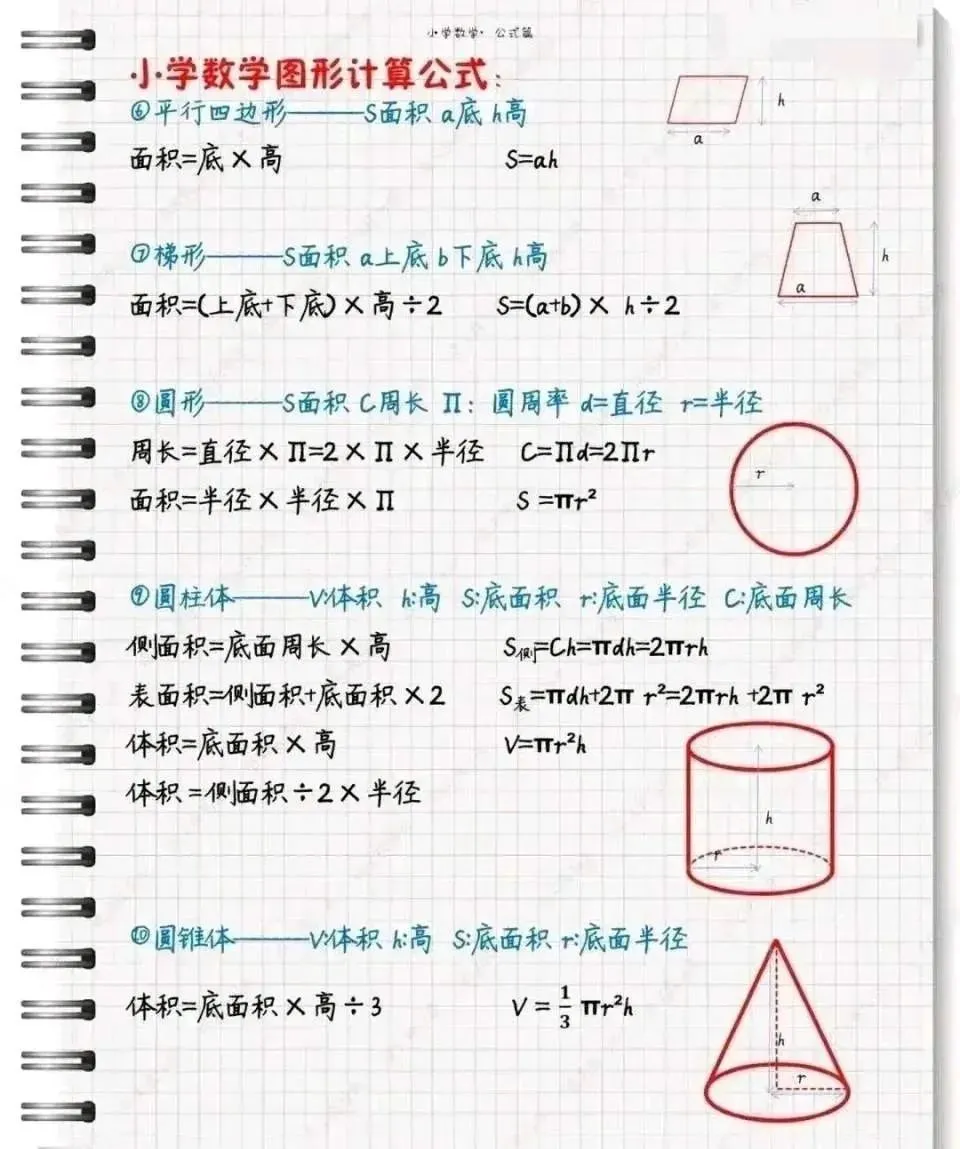 小学数学· 公式篇
小学数学图形计算公式：
⑥平行四边形———S面积 a底 h高
面积=底×高 S=ah
h
a
⑦梯形———S面积 a上底 b下底 h高
面积=(上底+下底)×高÷2 S=(a+b)× h÷2
a
h
a
⑧圆形———S面积 C周长 Π: 圆周率 d=直径 r=半径
周长=直径×Π=2×Π×半径 C=Πd=2Πr
面积=半径×半径×Π S =πr²
r
⑨圆柱体———V:体积 h:高 S:底面积 r:底面半径 C:底面周长
侧面积=底面周长×高 S侧=Ch=πdh=2πrh
表面积=侧面积+底面积×2 S表=πdh+2π r²=2πrh +2π r²
体积=底面积×高 V=πr²h
体积 =侧面积÷2×半径
h
r
⑩圆锥体———V:体积 h:高 S:底面积 r:底面半径
体积=底面积×高÷3 V = 1/3 πr²h
h
r